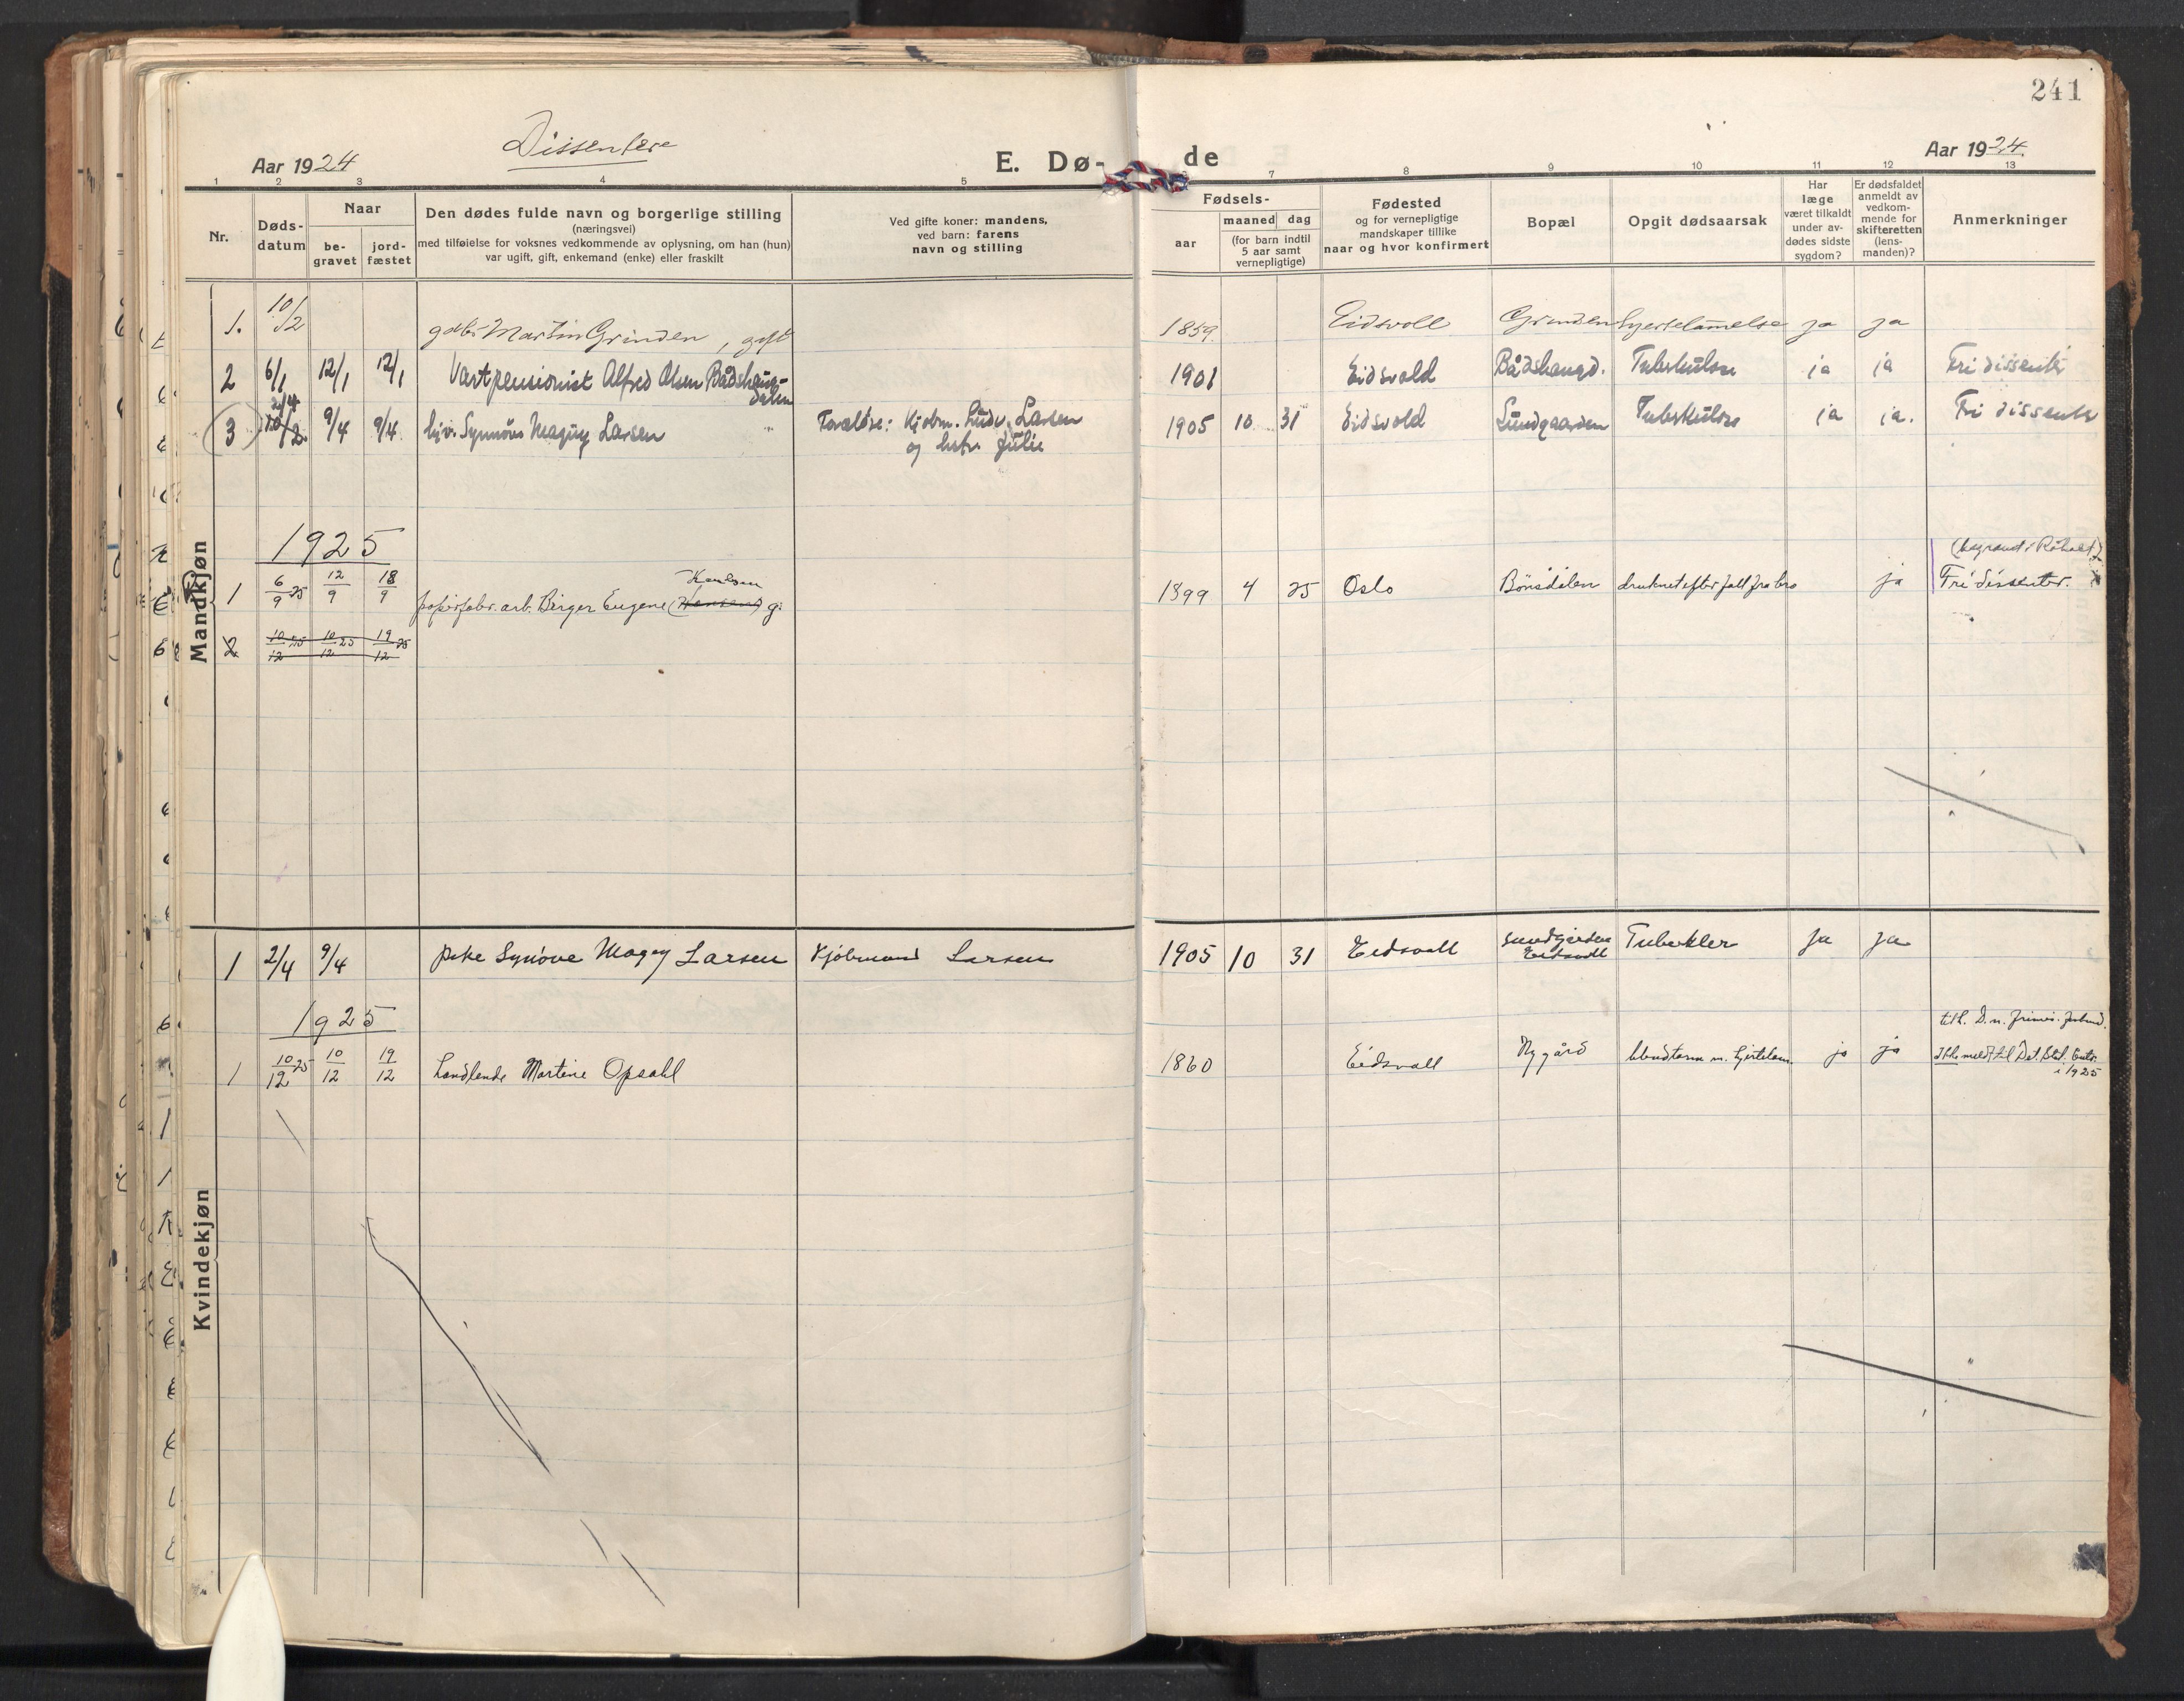 241
Dissentere
Aar 1924
E. Dø-
de
Aar 1924
1 2 3 4 5 7 8 9 10 11 12 13
Nr.
Døds-
datum
Naar
be-
gravet
jord-
fæstet
Den dødes fulde navn og borgerlige stilling
(næringsvei)
med tilføielse for voksnes vedkommende av oplysning, om han (hun)
var ugift, gift, enkemand (enke) eller fraskilt
Ved gifte koner: mandens,
ved barn: farens
navn og stilling
Fødsels-
aar
maaned dag
(for barn indtil
5 aar samt
vernepligtige)
Fødested
og for vernepligtige
mandskaper tillike
naar og hvor konfirmert
Bopæl
Opgit dødsaarsak
Har
læge
været tilkaldt
under av-
dødes sidste
sygdom?
Er dødsfaldet
anmeldt av
vedkom-
mende for
skifteretten
(lens-
manden)?
Anmerkninger
Mandkjøn
1. 10/2 gdbr. Martin Grinden, gift 1859. Eidsvoll Grinden hjertelamelse ja ja
2 6/1 12/1 12/1 Vartpensionist Alfred Olsen Bådshaug-
dalen 1901 Eidsvold Bådshaugd. Tuberkulose ja ja Fri dissenter
3 2/4 10/2 9/4 9/4 Synnøve Magny Larsen Forældre: Kjøbm. Ludv. Larsen
og hstr. Julie 1905 10 31 Eidsvold Sundgaarden Tuberkulose ja ja. Fri dissenter
1925
(begravet i Råholt)
1 6/9 25 12/9 18/9 papirfabr. arb. Birger Eugene (Hansen) Karlsen g: 1899 4 25 Oslo Bönsdalen druknet efter fall fra bro ja Fri dissenter.
2 10/12 25 10/12 25 19/12 25
Kvindekjøn
1 2/4 9/4 pike Synöve Magny Larsen Kjöbmand Larsen 1905 10 31 Eidsvoll Sundgården
Eidsvoll Tuberkler ja ja
1925
1 10/12 25 10/12 19/12 Landlende Martine Opsahl 1860 Eidsvall Nygård ja ja
tilh. D. n.
Ikke meldt til Det. Stat. Centr.
i 1925